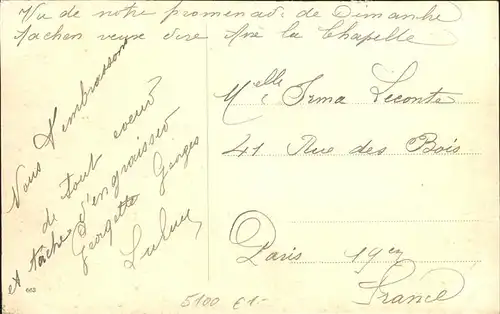 Vu de notre promenade de Dimanche
Aachen veux dire Aix la Chapelle
Nous t'embrassons
de tout coeur
et tâche d'engraisser
Georgette Georges
Lulu
Melle Irma Leconte
41 Rue des Bois
Paris 19em
France
662
5100 €1-